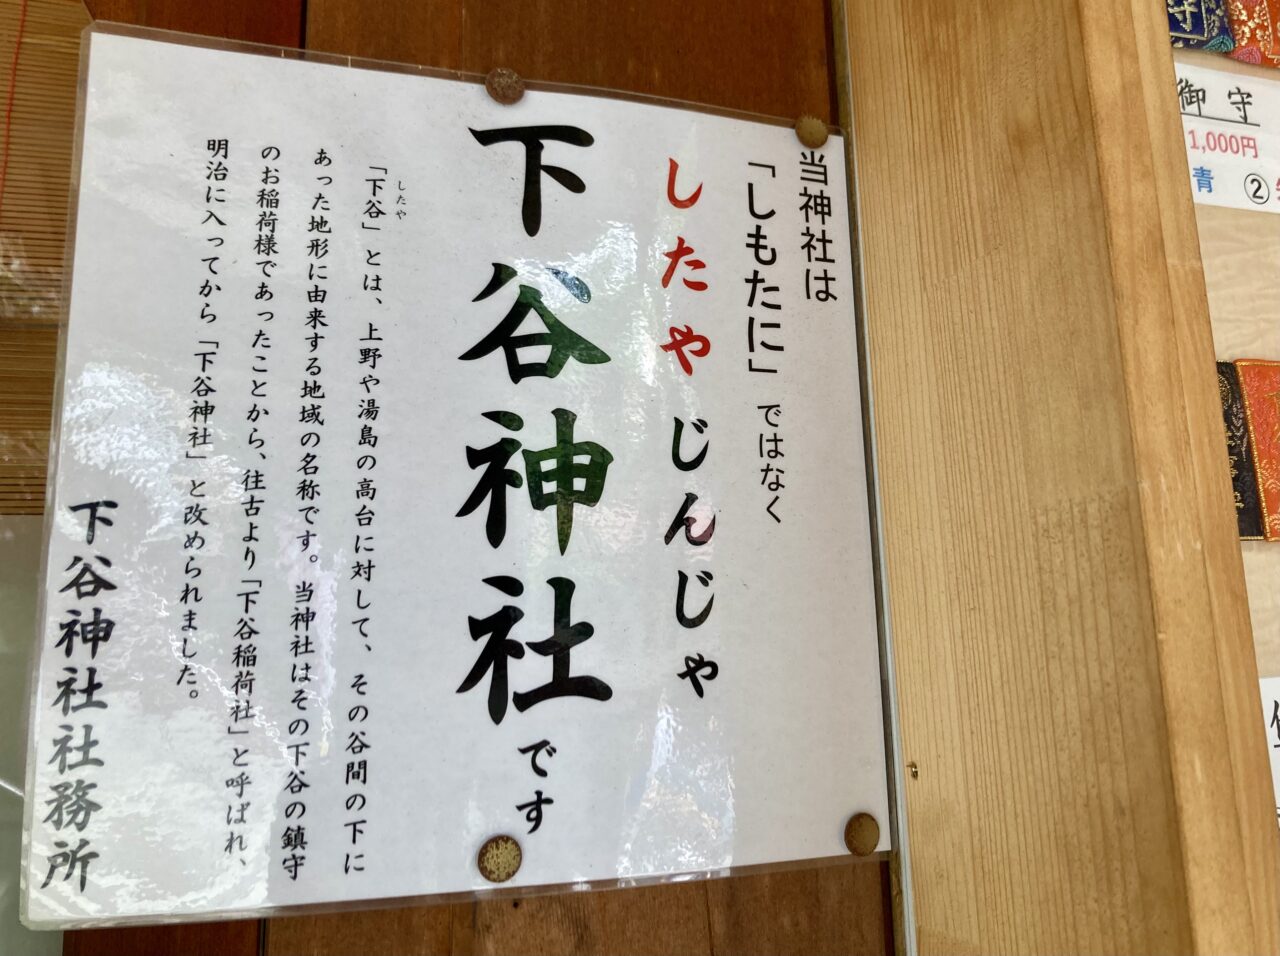 当神社は
「しもたに」ではなく
したやじんじゃ
下谷神社です
したや
「下谷」とは、上野や湯島の高台に対して、その谷間の下に
あった地形に由来する地域の名称です。当神社はその下谷の鎮守
のお稲荷様であったことから、往古より「下谷稲荷社」と呼ばれ、
明治に入ってから「下谷神社」と改められました。
下谷神社社務所
守
御守
1,000円
青 ②